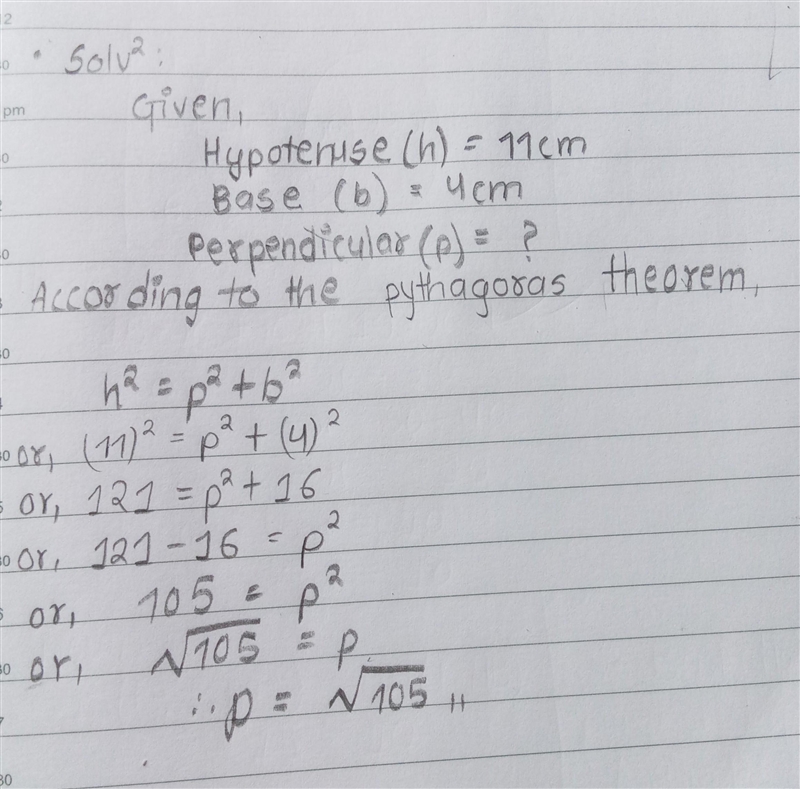 • Solv²:
Given,
Hypotenuse (h) = 11cm
Base (b) = 4cm
Perpendicular (p) = ?
According to the pythagoras theorem,
h² = p² + b²
or, (11)² = p² + (4)²
or, 121 = p² + 16
or, 121 - 16 = p²
or, 105 = p²
or, √105 = p
∴ p = √105 ,,